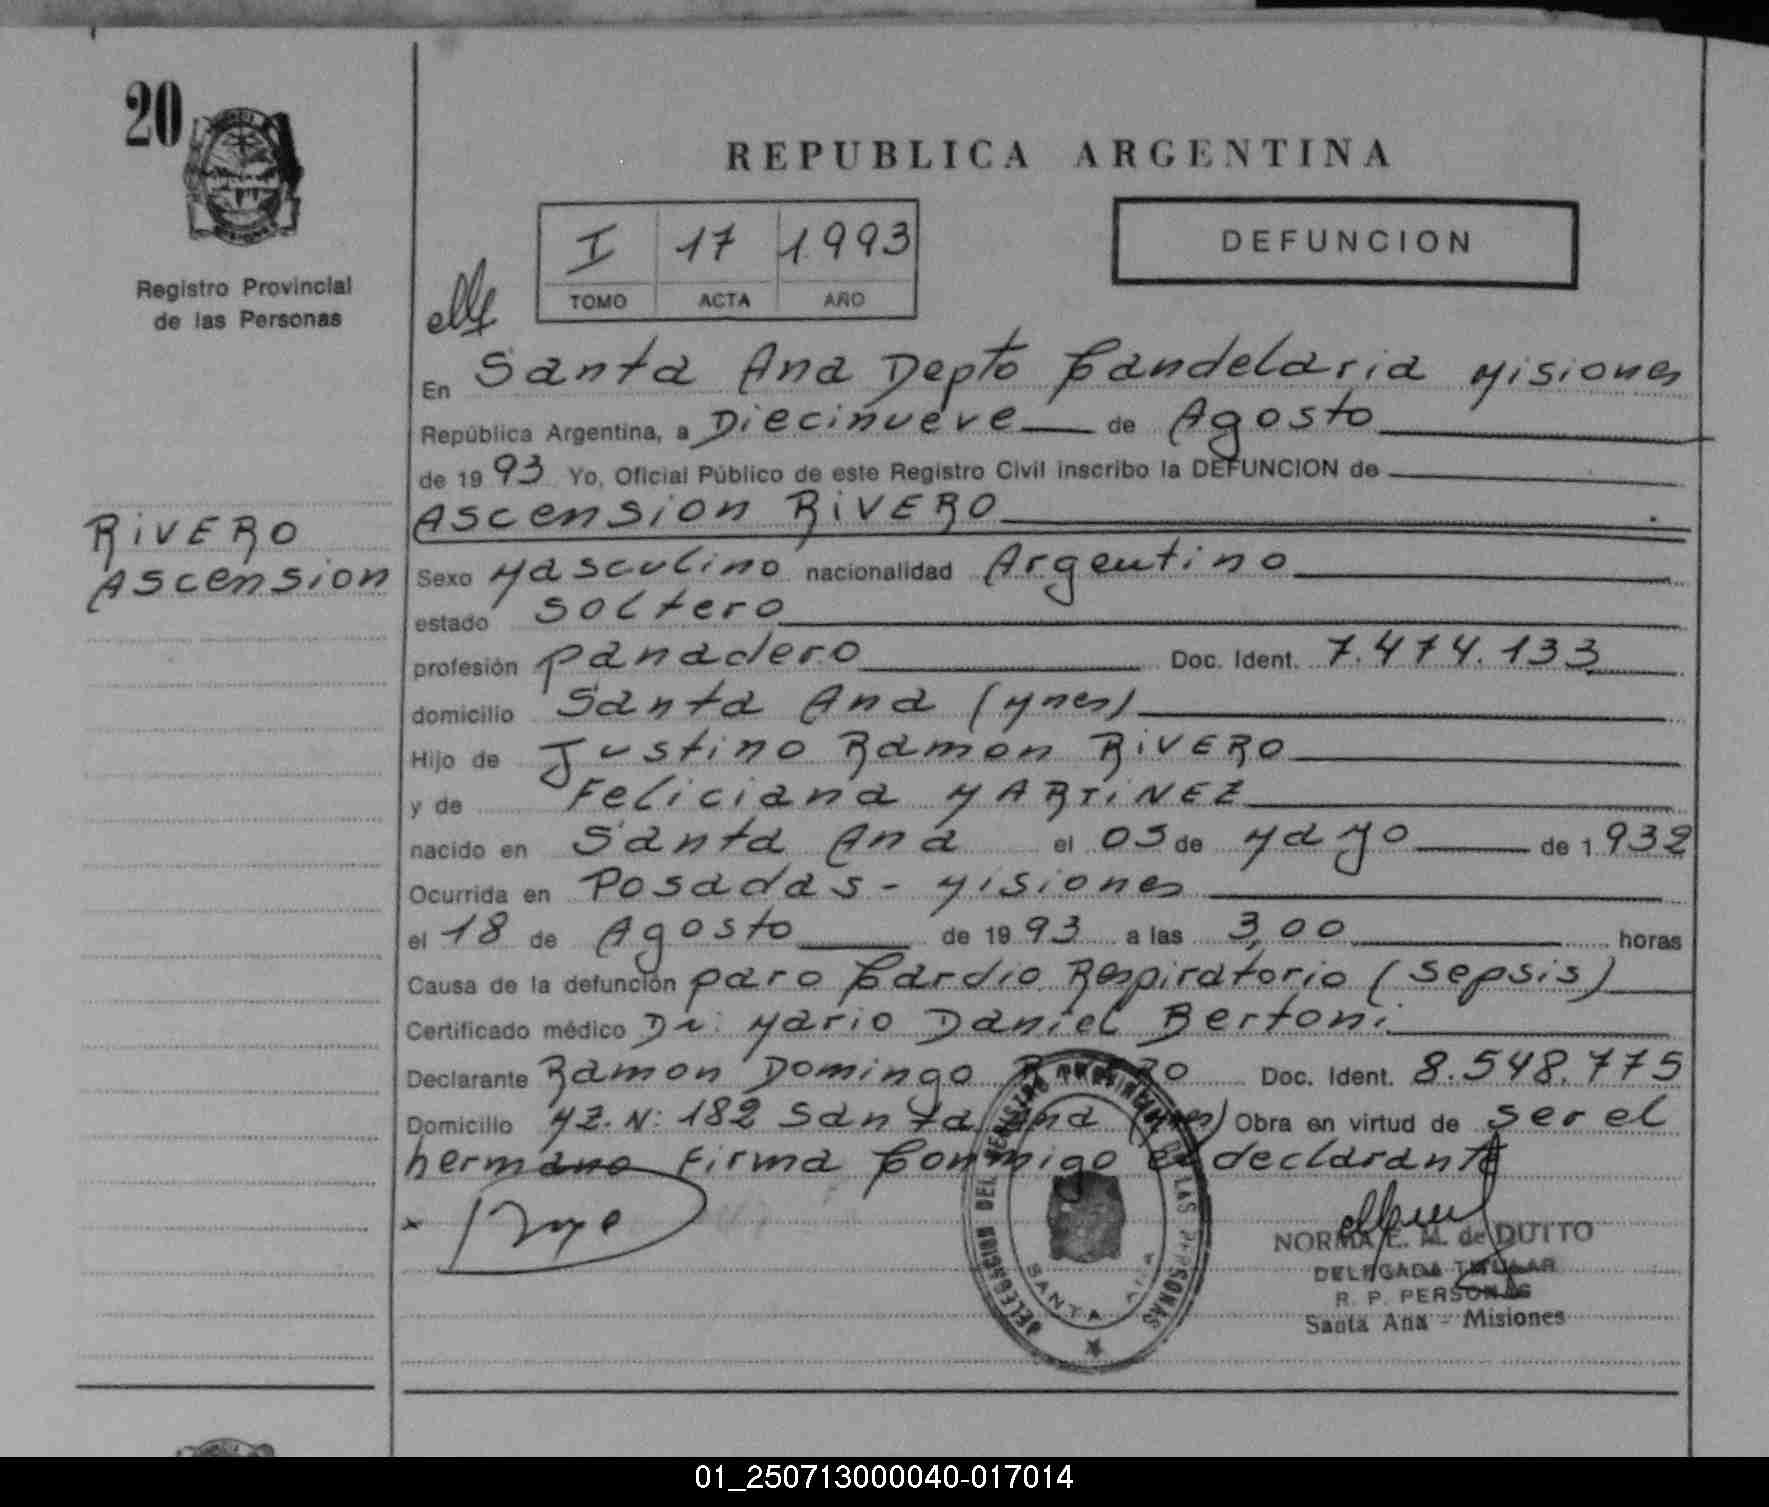 20
Registro Provincial
de las Personas
REPUBLICA ARGENTINA
I 17 1993
TOMO ACTA AÑO
DEFUNCION
En Santa Ana Depto Candelaria Misiones
República Argentina, a Diecinueve de Agosto
de 1993 Yo, Oficial Público de este Registro Civil inscribo la DEFUNCION de
RIVERO
ASCENSION
ASCENSION RIVERO
Sexo Masculino nacionalidad Argentino
estado soltero
profesión panadero Doc. Ident. 7.474.133
domicilio Santa Ana (Mnes)
Hijo de Justino Ramon RIVERO
y de Feliciana MARTINEZ
nacido en Santa Ana el 05 de Mayo de 1932
Ocurrida en Posadas - Misiones
el 18 de Agosto de 1993 a las 3,00 horas
Causa de la defunción paro Cardio Respiratorio (sepsis)
Certificado médico Dr: Mario Daniel Bertoni
Declarante Ramon Domingo RIVERO Doc. Ident. 8.548.775
Domicilio MZ. N: 182 Santa Ana (Mnes) Obra en virtud de ser el
hermano Firma Conmigo el declarante
DELEGACION DEL REGISTRO PROVINCIAL DE LAS PERSONAS
SANTA ANA
NORMA E. M. de DUTTO
DELEGADA TITULAR
R. P. PERSONAS
Santa Ana - Misiones
01_250713000040-017014